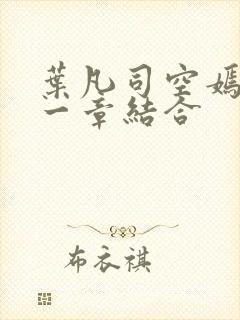 葉凡司空嫣
一章結合
布衣祺